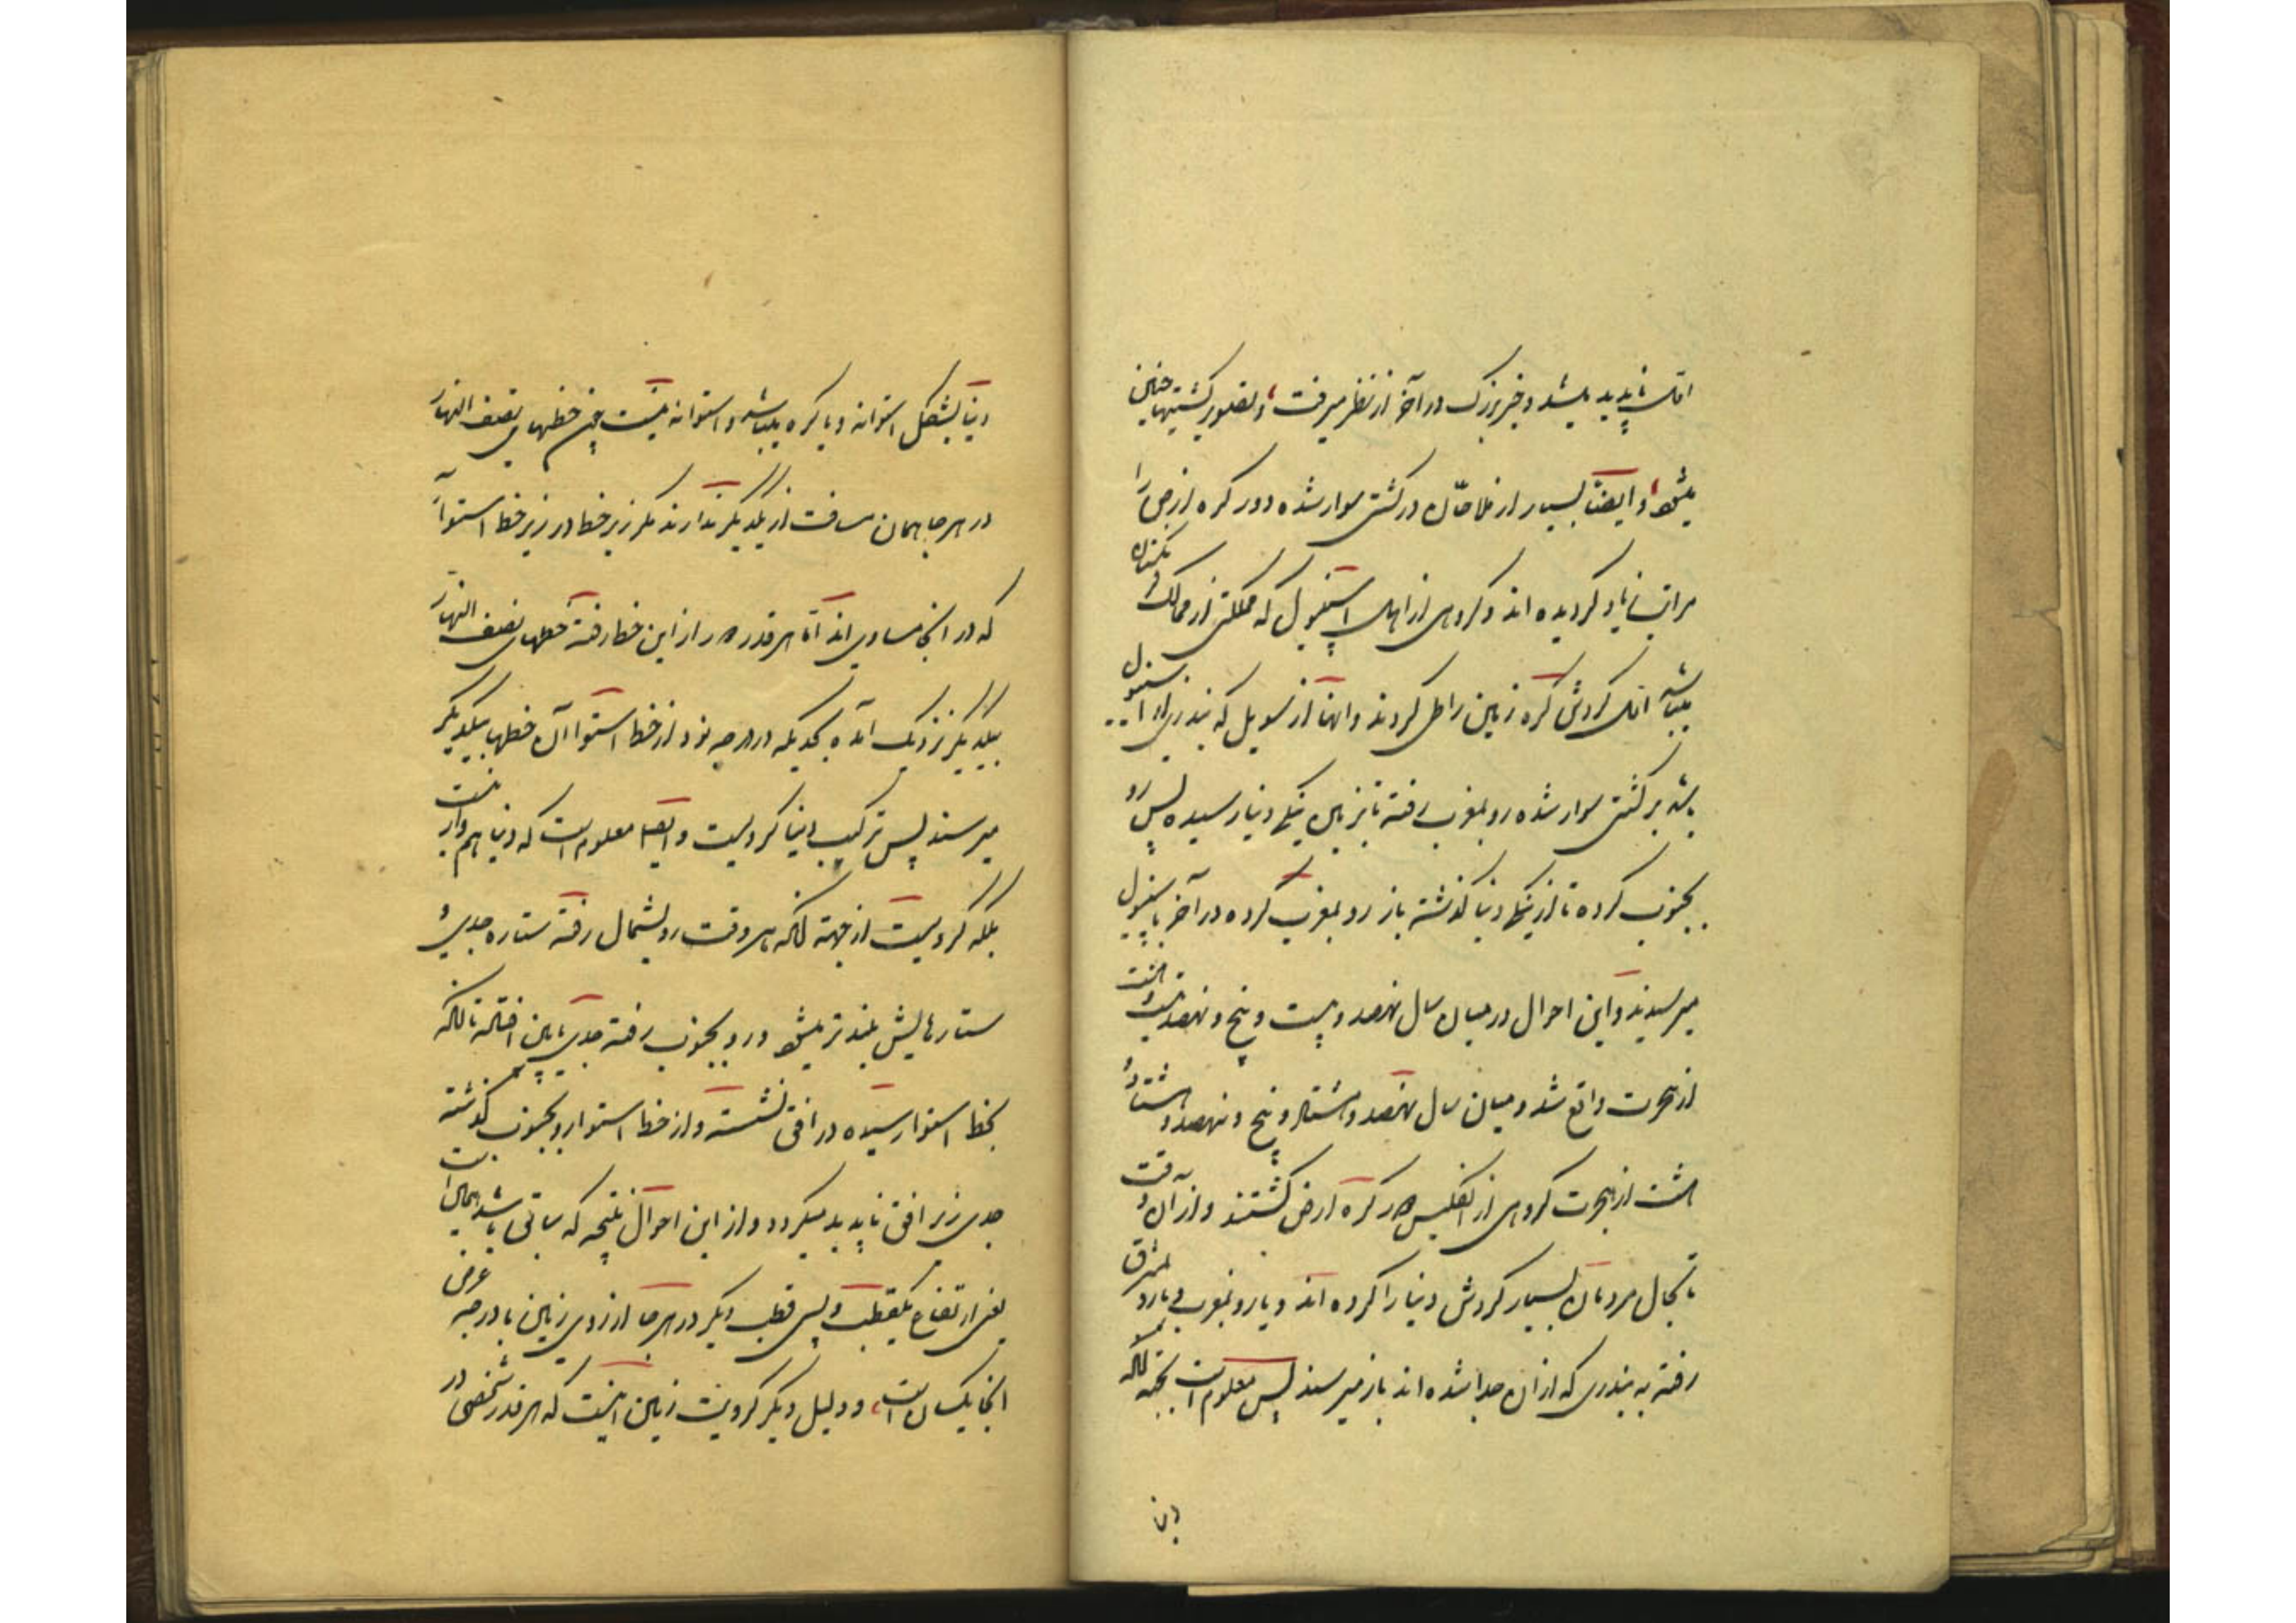 اول ناپدید میشد و چیز بزرک در آخر از نظر میرفت و بضور کشتیها چنین
میشود و ایضاً بسیار از ملاحان در کشتی سوار شده دور کره ارض را
مراتب زیاد کردیده اند و کروهی از اهل اسپنیول که مملکتی از ممالک فرنکستان
میباشد اول کردش کره زمین را طی کردند و انها از سویل که بندری از اسپنیول
باشد بر کشتی سوار شده رو بمغرب رفته تا بزمین ینکی دنیا رسیده پس رو
بجنوب کرده تا از ینکی دنیا کذشته باز رو بمغرب کرده در آخر باسپنیول
میرسیدند و این احوال در میان سال نهصد و بیست و پنج و نهصد و بیست و هشت
از هجرت واقع شد و میان سال نهصد و هشتاد و پنج و نهصد و هشتاد و
هشت از هجرت کروهی از انکلیس دور کره ارض کشتند و از آن وقت
تا بحال مردمان بسیار کردش دنیا را کرده اند و یا رو بمغرب و یا رو بمشرق
رفته به بندری که از ان جدا شده اند باز میرسند پس معلوم است بجهة انکه
دنیا بشکل استوانه و یا کره میباشد و استوانه نیست چون خطهای نصف النهار
در هر جا همان مسافت از یکدیکر ندارند مکر زیر خط در زیر خط استوا
که در انجا مساوی اند اما هر قدر دور از این خط رفته خطهای نصف النهار
بیکدیکر نزدیک آمده بحدیکه در درجه نود از خط استوا آن خطها بیکدیکر
میرسند پس ترکیب دنیا کرویست و ایضا معلوم است که دنیا هموار نیست
بلکه کرویست از جهة انکه هر وقت رو بشمال رفته ستاره جدی و
ستارهایش بلند تر میشود و رو بجنوب رفته جدی پایین افتاده تا انکه
بخط استوا رسیده در افق نشسته و از خط استوا رو بجنوب کذشته
جدی زیر افق ناپدید میکردد و از این احوال نتیجه که سابق باشد همان است
یعنی ارتفاع یکقطب و پس قطب دیکر در هر جا از روی زمین با درجه عرض
انجا یکسان است و دلیل دیکر کرویت زمین اینست که هر قدر شخصی در